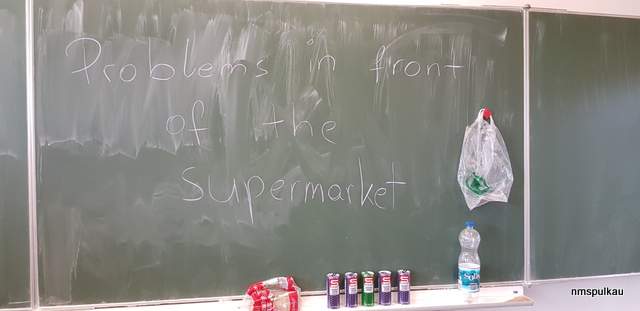 Problems in front
of the
supermarket
nmspulkau